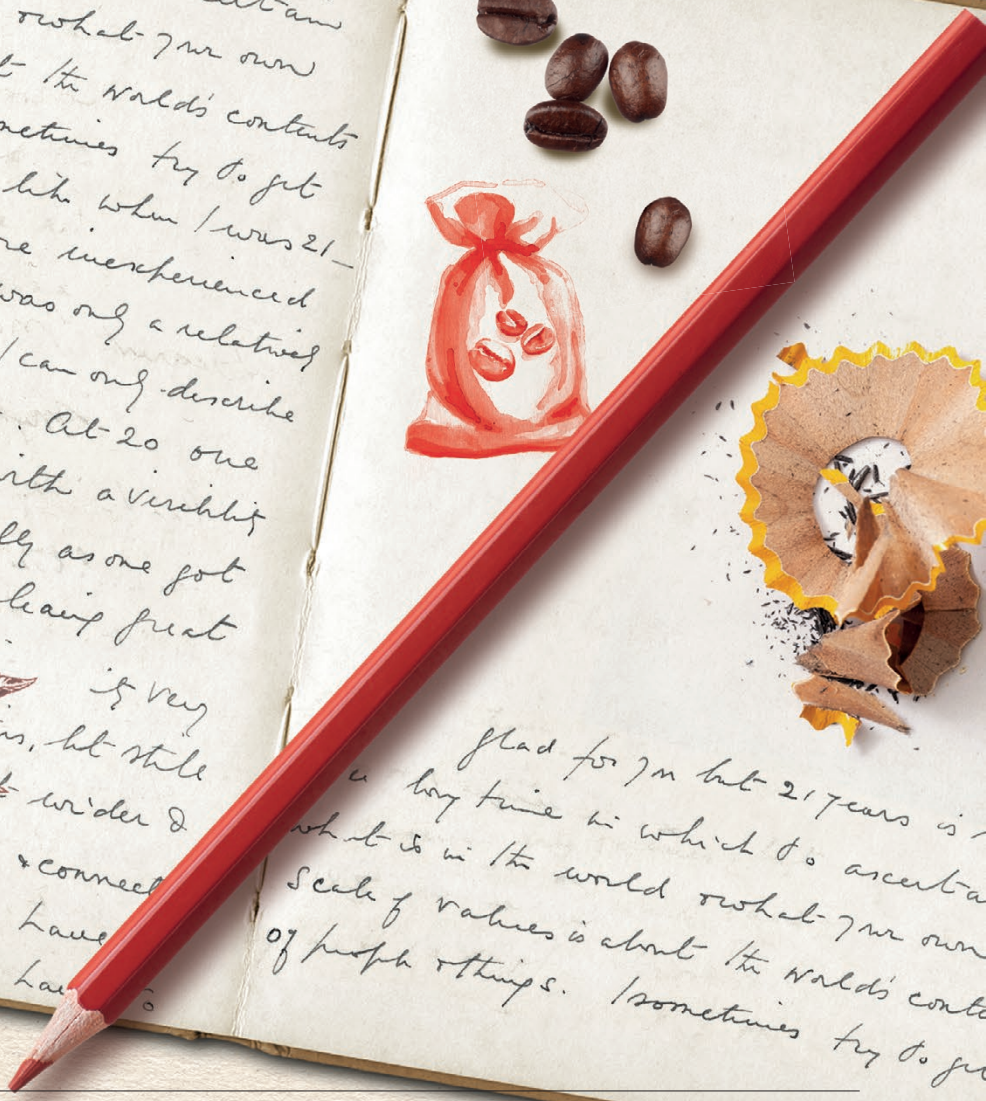 what your own
the world's contents
sometimes try to get
like when I was 21 —
inexperienced
was only a relatively
I can only describe
. At 20 one
with a
as one got
having great
is very
, but still
wider &
& connect
have
glad for you but 21 years is
a long time in which to
what is in the world & what your own
Scale of values is about the world's
of people & things. I sometimes try to